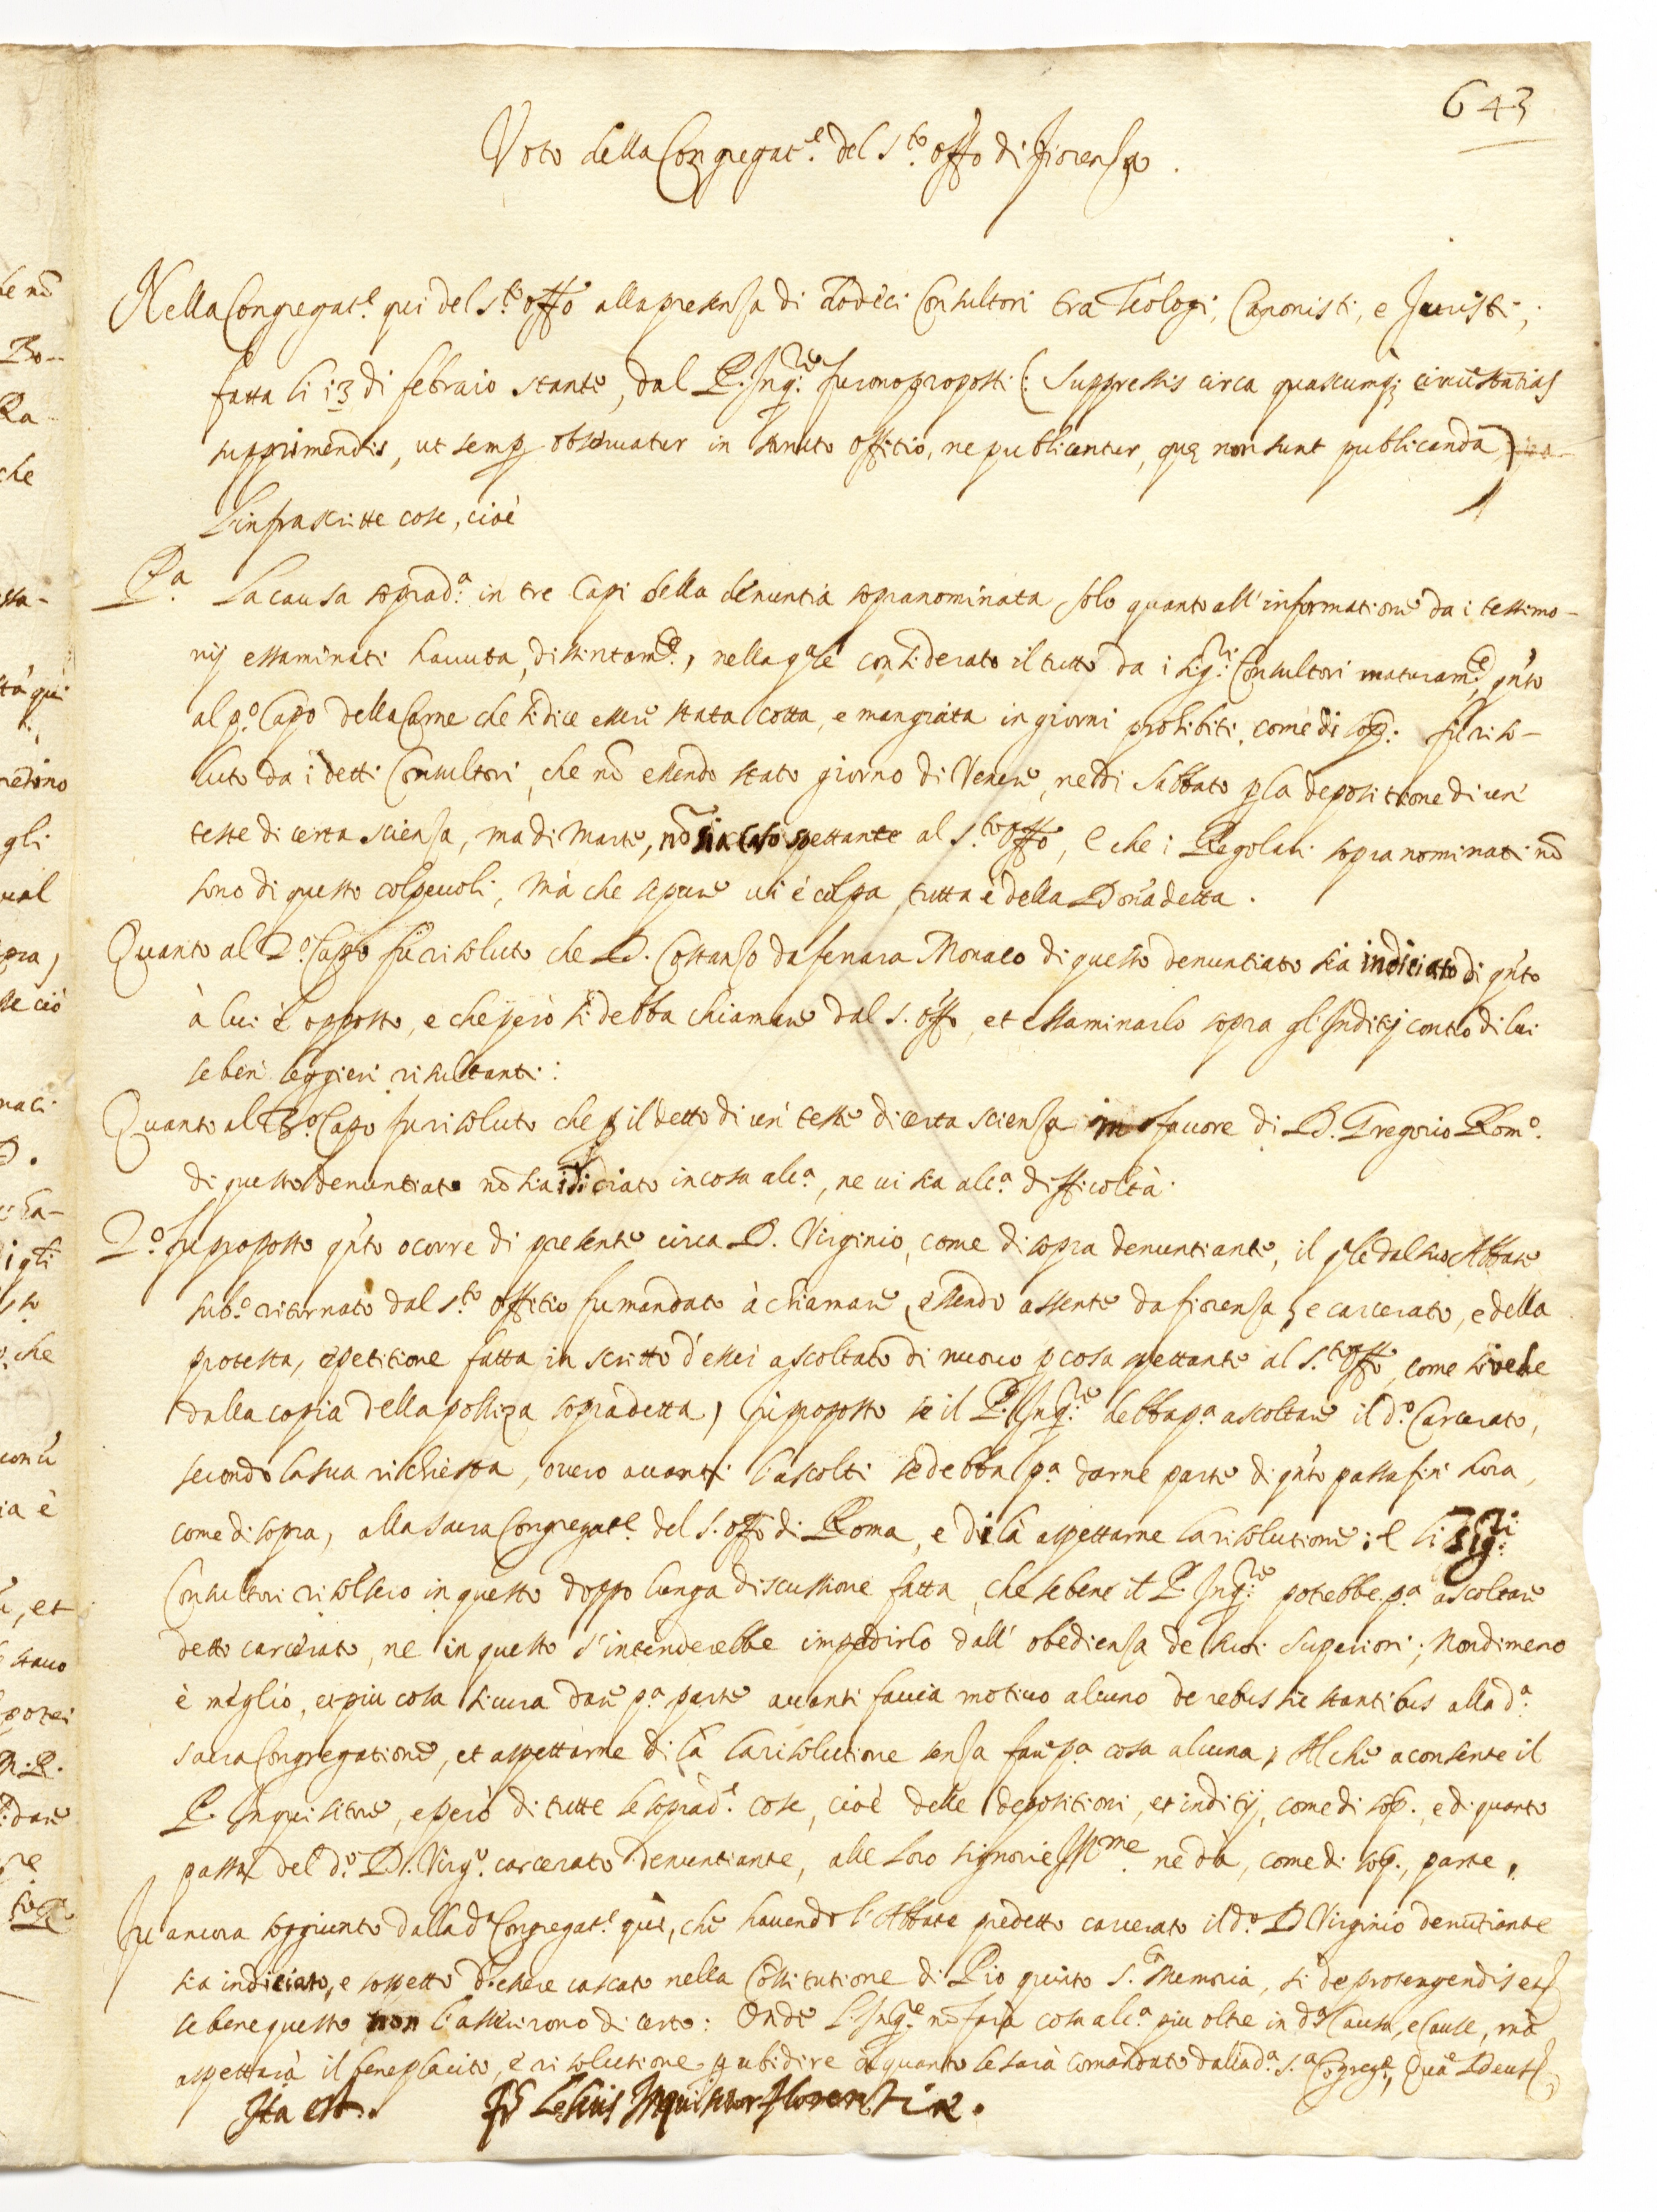 643
Voto della Congregat.e del S.to offo di fiorenza.
Nella Congregat.e qui del S.to offo alla presenza di dodeci Consultori tra Teologi, Canonisti, e Juristi;
fatta li 13 di febraio stante, dal P. Inq.re furono proposti (: suppressis circa quascumq; circustatias
supprimendis, ut semp observatur in sancto offitio, ne publicentur, quę non sunt publicanda)
L'infrascritte cose, cioè
P.a La causa soprad.a in tre Capi della denuntia sopranominata solo quanto all'informatione da i testimo-
nij essaminati havuta, distintam.e, nella q.ale considerato il tutto da i sig.ri Consultori maturam.e, q.nto
al p.o Capo della Carne che si dice essere stata cotta, e mangiata in giorni prohibiti, come di sop.a fu riso-
luto da i detti Consultori, che nō essendo stato giorno di Venere, ne di Sabbato p la depositione di un'
teste di certa scienza, ma di Marte, nō sia caso spettante al S.to offo, e che i Regolari sopra nominati nō
sono di questo colpevoli, mà che se pure vi è colpa tutta è della Donna detta.
Quanto al 2.o Capo fu risoluto che D. Costanzo da ferrara Monaco di questo denuntiato sia indiciato di q.nto
à lui è opposto, e che però si debba chiamare dal S. offo, et essaminarlo sopra gl'Inditij contro di lui
se ben' leggieri risultanti:
Quanto al 3.o Capo fu risoluto che p il detto di un' teste di certa scienza in favore di D. Gregorio Rom.o
di questo denuntiato nō sia idiciato in cosa alc.a, ne vi sia alc.a difficoltà.
2.o fu proposto q.nto ocorre di presente circa D. Virginio, come di sopra denuntiante, il q.le dal suo Abbate
sub.o ritornato dal S.to offitio fu mandato à chiamare, essendo assente da fiorenza, e carcerato, e della
protesta, e petitione fatta in scritto d'esser ascoltato di nuovo p cosa spettante al S.to offo, come si vede
dalla copia della polliza sopradetta, fu proposto se il P. Inq.re debba p.a ascoltare il d.o Carcerato,
secondo la sua richiesta, overo avanti l'ascolti se debba p.a darne parte di q.nto passa fin' hora,
come di sopra, alla sacra Congregat.e del S. offo di Roma, e di là aspettarne la risolutione; e li sig.ri
Consultori risolsero in questo doppo lunga discussione fatta, che se bene il P. Inq.re potrebbe p.a ascoltare
detto carcerato, ne in questo s'intenderebbe impedirlo dall' obedienza de suoi Superiori; Nondimeno
è meglio, et più cosa sicura dare p.a parte avanti faccia motivo alcuno de rebus sic stantibus alla d.a
sacra Congregatione, et aspettarne di là la risolutione senza fare p.a cosa alcuna, Al che aconsente il
P. Inquisitore, e però di tutte le soprad.e cose, cioè delle depositioni, et inditij, come di sop., e di quanto
passa del d.o D. Virg.o carcerato denuntiante, alle loro signorie Ill.me ne dà, come di sop., parte,
fu ancora soggiunto dalla d.a Congregat.e qui, che havendo l'Abbate predetto carcerato il d.o D. Virginio denūtiante
sia indiciato, e sospetto d'essere cascato nella Cōstitutione di Pio quinto S.a Memoria, si de protengendis etc
se bene questo non l'asserirono di certo: Onde l'Inq.re nō farà cosa alc.a più oltre in d.a Causa, e Cause, mà
aspettarà il beneplacito, e risolutione p ubidire à quanto le sarà comandato dalla d.a S.a Cōgreg.e, Quā Deus etc
Ita est. Fr Lelius Inquisitor Florentię.